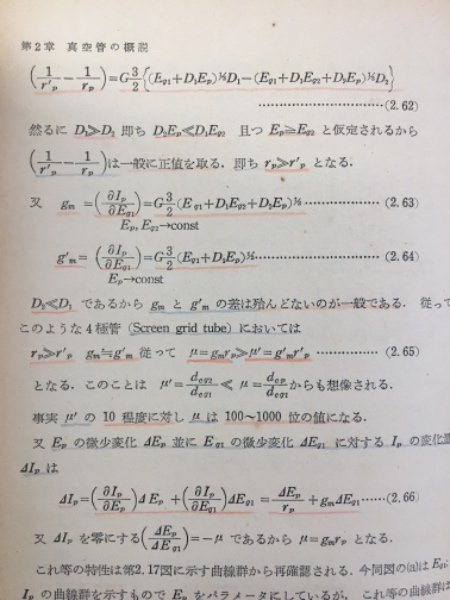 第2章 真空管の概説
(1/r'p − 1/rp) = G 3/2 {(Eg1+D1Ep)^½D1−(Eg1+D1Eg2+D2Ep)^½D2}
……………………(2.62)
然るに D1≫D2 即ち D2Ep≪D1Eg2 且つ Ep≧Eg2 と仮定されるから
(1/r'p − 1/rp)は一般に正値を取る. 即ち rp≫r'p となる.
又 gm =(∂Ip/∂Eg1)=G 3/2 (Eg1+D1Eg2+D2Ep)^½ ………………(2.63)
Ep, Eg2→const
g'm =(∂Ip/∂Eg1)=G 3/2 (Eg1+D1Ep)^½………………………(2.64)
Ep→const
D2≪D1 であるから gm と g'm の差は殆んどないのが一般である. 従って
このような4極管 (Screen grid tube) においては
rp≫r'p gm≒g'm 従って μ=gmrp≫μ'=g'mr'p ………………(2.65)
となる. このことは μ'=dcg2/dcg1 ≪ μ=dcp/dcg1 からも想像される.
事実 μ' の 10 程度に対し μ は 100~1000 位の値になる.
又 Ep の微少変化 ΔEp 並に Eg1 の微少変化 ΔEg1 に対する Ip の変化量
ΔIp は
ΔIp=(∂Ip/∂Ep)ΔEp +(∂Ip/∂Eg1)ΔEg1 = ΔEp/rp + gmΔEg1……(2.66)
又 ΔIp を零にする(ΔEp/ΔEg1)=−μ であるから μ=gmrp となる.
これ等の特性は第2.17図に示す曲線群から再確認される. 今同図の(a)は Eg1:
Ip の曲線群を示すもので Ep をパラメータにしているが, これ等の曲線は